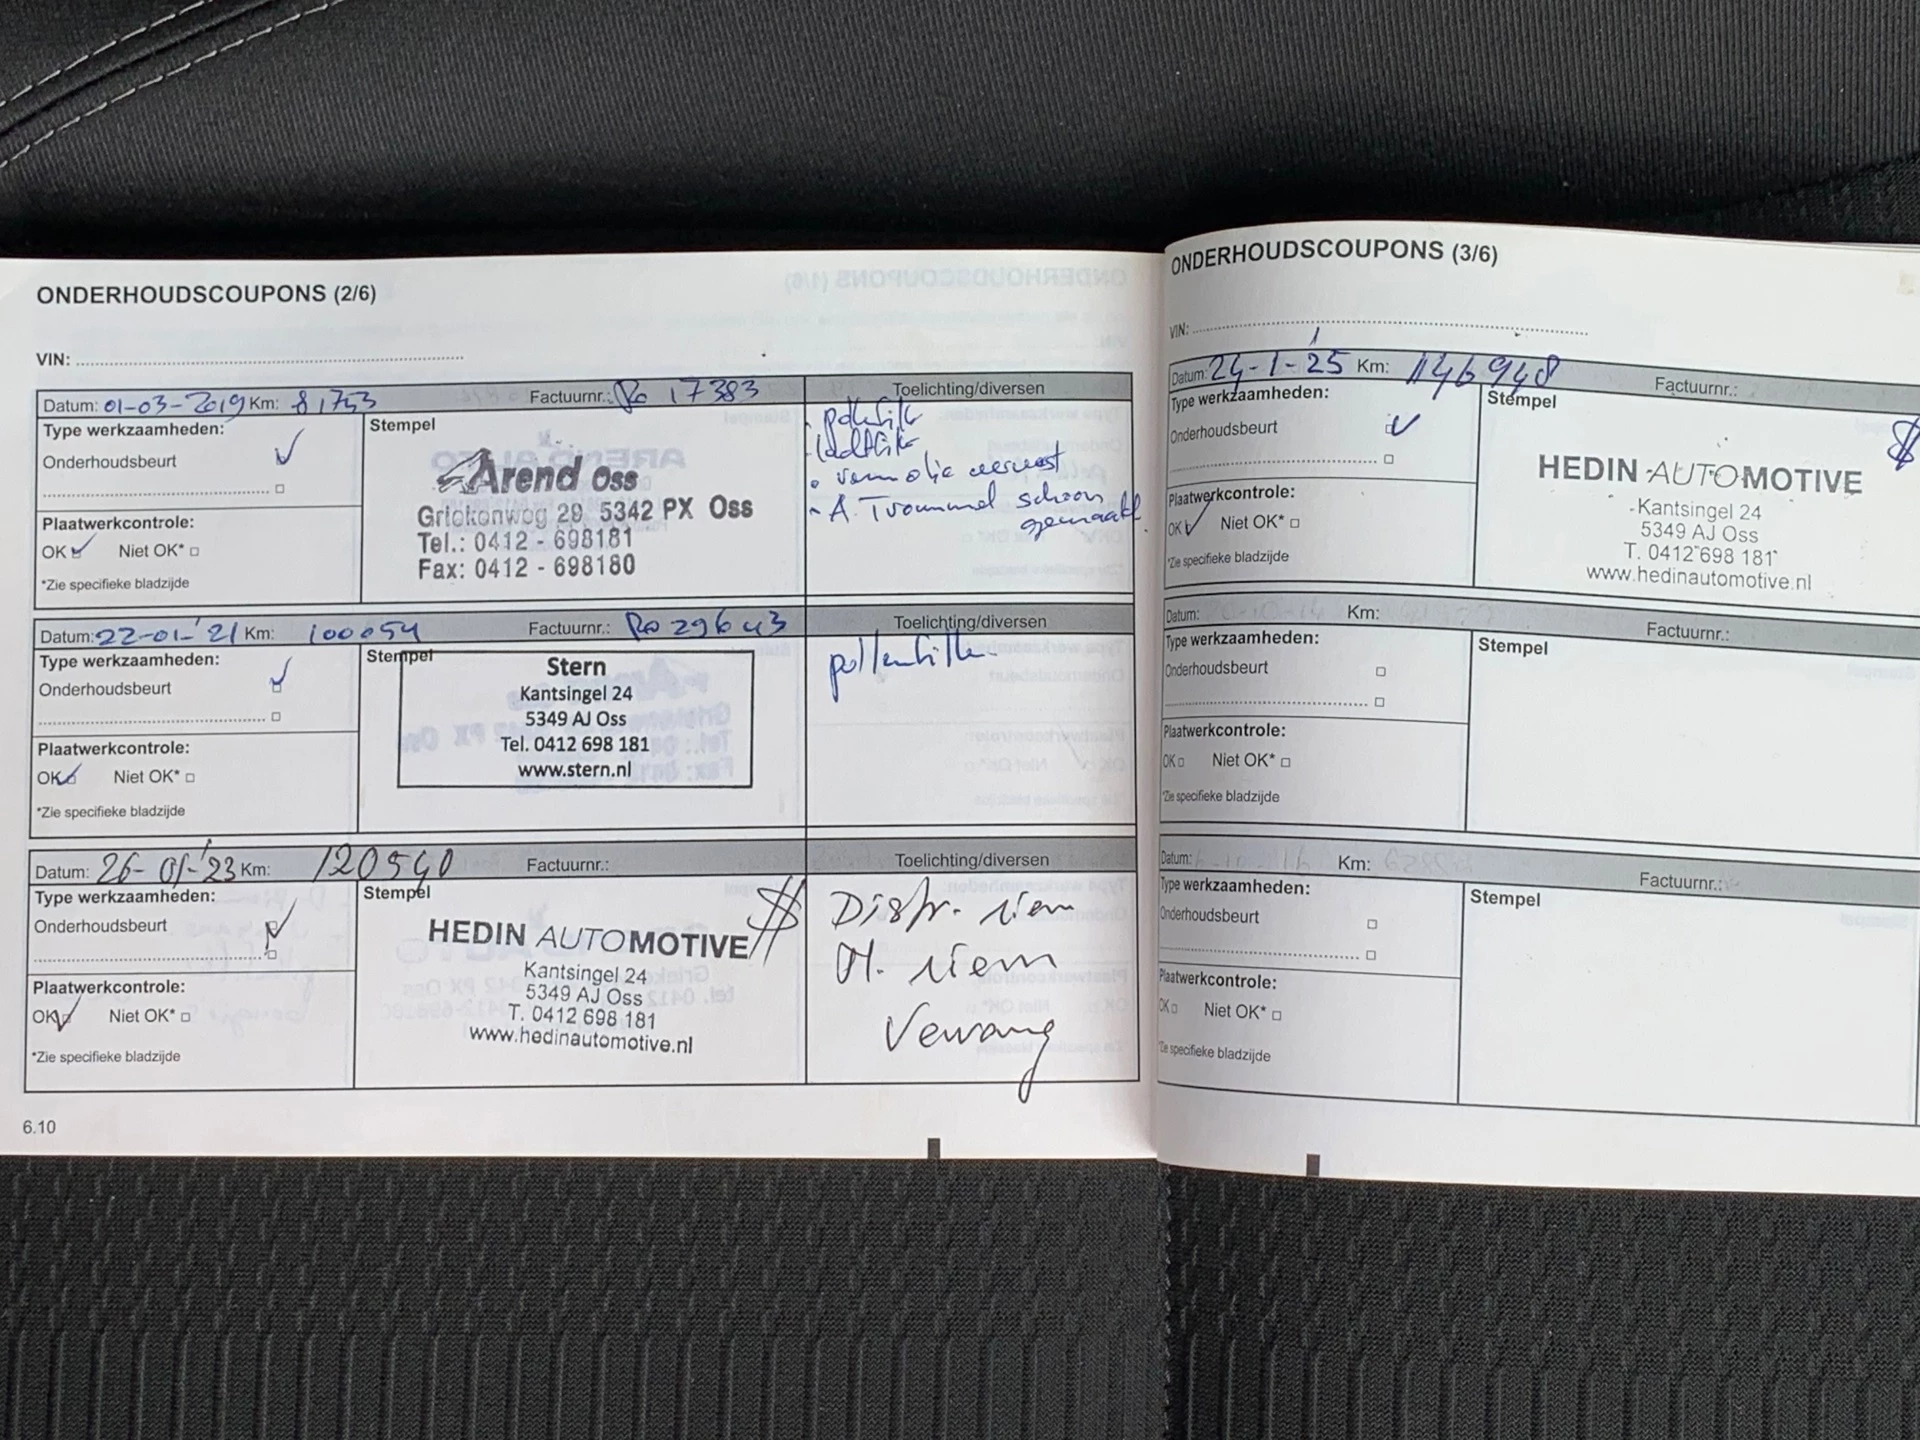 ONDERHOUDSCOUPONS (2/6)
VIN:
Datum: 01-03-2019 Km: 81753 Factuurnr.: Ro 17383 Toelichting/diversen
Type werkzaamheden:
Onderhoudsbeurt
Plaatwerkcontrole:
OK Niet OK*
*Zie specifieke bladzijde
Stempel
Arend Oss
Griekenweg 29, 5342 PX Oss
Tel.: 0412 - 698181
Fax: 0412 - 698180
- A. Trommel schoon
gemaakt.
Datum: 22-01-'21 Km: 100054 Factuurnr.: Ro 29643 Toelichting/diversen
Type werkzaamheden:
Onderhoudsbeurt
Plaatwerkcontrole:
OK Niet OK*
*Zie specifieke bladzijde
Stempel
Stern
Kantsingel 24
5349 AJ Oss
Tel. 0412 698 181
www.stern.nl
pollenfilter
Datum: 26-01-'23 Km: 120540 Factuurnr.: Toelichting/diversen
Type werkzaamheden:
Onderhoudsbeurt
Plaatwerkcontrole:
OK Niet OK*
*Zie specifieke bladzijde
Stempel
HEDIN AUTOMOTIVE
Kantsingel 24
5349 AJ Oss
T. 0412 698 181
www.hedinautomotive.nl
Distr. riem
riem
6.10
ONDERHOUDSCOUPONS (3/6)
VIN:
Datum: 24-1-'25 Km: 146948 Factuurnr.:
Type werkzaamheden:
Onderhoudsbeurt
Plaatwerkcontrole:
OK Niet OK*
*Zie specifieke bladzijde
Stempel
HEDIN AUTOMOTIVE
Kantsingel 24
5349 AJ Oss
T. 0412 698 181
www.hedinautomotive.nl
Datum: Km: Factuurnr.:
Type werkzaamheden:
Onderhoudsbeurt
Plaatwerkcontrole:
OK Niet OK*
*Zie specifieke bladzijde
Stempel
Datum: Km: Factuurnr.:
Type werkzaamheden:
Onderhoudsbeurt
Plaatwerkcontrole:
OK Niet OK*
*Zie specifieke bladzijde
Stempel